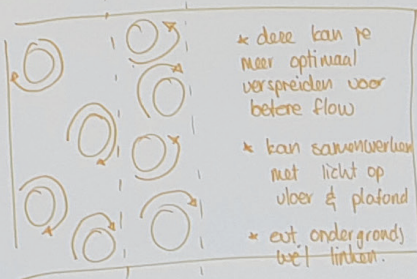 * deze kan je
meer optimaal
verspreiden voor
betere flow
* kan samenwerken
met licht op
vloer & plafond
* evt ondergronds
wel linken.